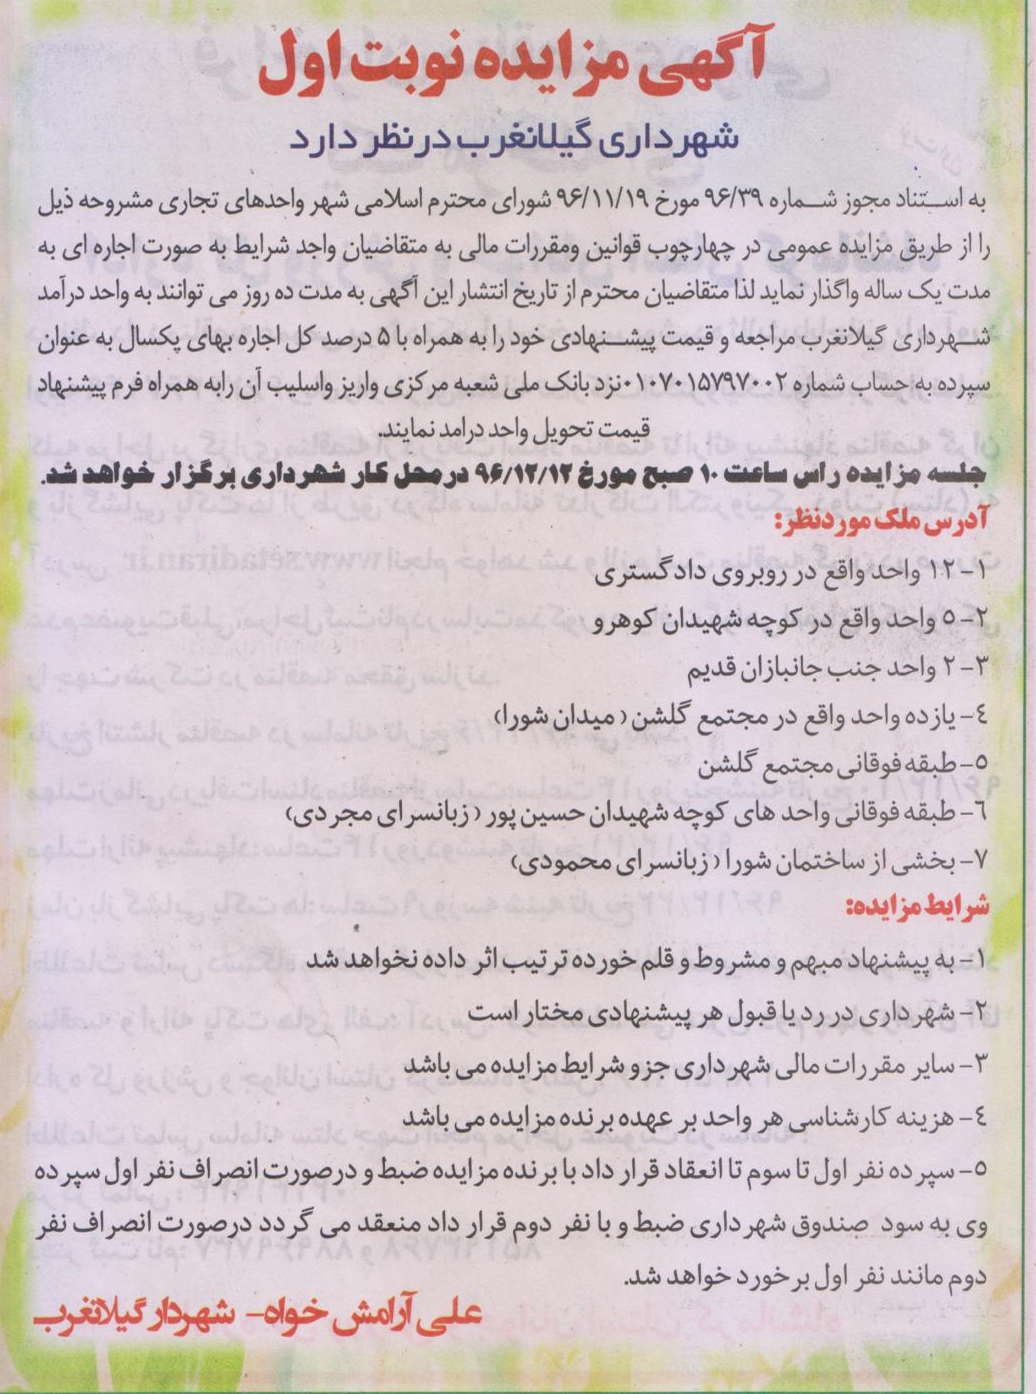 آگهی مزایده نوبت اول
شهرداری گیلانغرب درنظر دارد
به استناد مجوز شماره ۹۶/۳۹ مورخ ۹۶/۱۱/۱۹ شورای محترم اسلامی شهر واحدهای تجاری مشروحه ذیل
را از طریق مزایده عمومی در چهارچوب قوانین ومقررات مالی به متقاضیان واجد شرایط به صورت اجاره ای به
مدت یک ساله واگذار نماید لذا متقاضیان محترم از تاریخ انتشار این آگهی به مدت ده روز می توانند به واحد درآمد
شهرداری گیلانغرب مراجعه و قیمت پیشنهادی خود را به همراه با ۵ درصد کل اجاره بهای یکسال به عنوان
سپرده به حساب شماره ۰۱۰۷۰۱۵۷۹۷۰۰۲نزد بانک ملی شعبه مرکزی واریز واسلیب آن رابه همراه فرم پیشنهاد
قیمت تحویل واحد درامد نمایند.
جلسه مزایده راس ساعت ۱۰ صبح مورخ ۹۶/۱۲/۱۲ درمحل کار شهرداری برگزار خواهد شد.
آدرس ملک موردنظر:
۱- ۱۲ واحد واقع در روبروی دادگستری
۲- ۵ واحد واقع در کوچه شهیدان کوهرو
۳- ۲ واحد جنب جانبازان قدیم
۴- یازده واحد واقع در مجتمع گلشن ( میدان شورا)
۵- طبقه فوقانی مجتمع گلشن
۶- طبقه فوقانی واحد های کوچه شهیدان حسین پور ( زبانسرای مجردی)
۷- بخشی از ساختمان شورا ( زبانسرای محمودی)
شرایط مزایده:
۱- به پیشنهاد مبهم و مشروط و قلم خورده ترتیب اثر داده نخواهد شد
۲- شهرداری در رد یا قبول هر پیشنهادی مختار است
۳- سایر مقررات مالی شهرداری جزو شرایط مزایده می باشد
۴- هزینه کارشناسی هر واحد بر عهده برنده مزایده می باشد
۵- سپرده نفر اول تا سوم تا انعقاد قرار داد با برنده مزایده ضبط و درصورت انصراف نفر اول سپرده
وی به سود صندوق شهرداری ضبط و با نفر دوم قرار داد منعقد می گردد درصورت انصراف نفر
دوم مانند نفر اول برخورد خواهد شد.
علی آرامش خواه- شهردار گیلانغرب